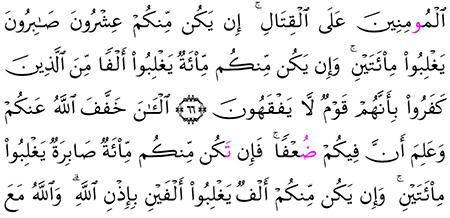 اَ۬لْمُومِنِينَ عَلَى اَ۬لْقِتَالِۚ إِن يَكُن مِّنكُمْ عِشْرُونَ صَـٰبِرُونَ
يَغْلِبُواْ مِاْئَتَيْنِۚ وَإِن يَكُن مِّنكُم مِّاْئَةٌ يَغْلِبُوٓاْ أَلْفاً مِّنَ اَ۬لَّذِينَ
كَفَرُواْ بِأَنَّهُمْ قَوْمٌ لَّا يَفْقَهُونَ ۝٦٦ اَ۬لْـَٰٔنَ خَفَّفَ اَ۬للَّهُ عَنكُمْ
وَعَلِمَ أَنَّ فِيكُمْ ضُعْفاًۚ فَإِن تَكُن مِّنكُم مِّاْئَةٌ صَابِرَةٌ يَغْلِبُواْ
مِاْئَتَيْنِۚ وَإِن يَكُن مِّنكُمْ أَلْفٌ يَغْلِبُوٓاْ أَلْفَيْنِ بِإِذْنِ اِ۬للَّهِۗ وَاللَّهُ مَعَ